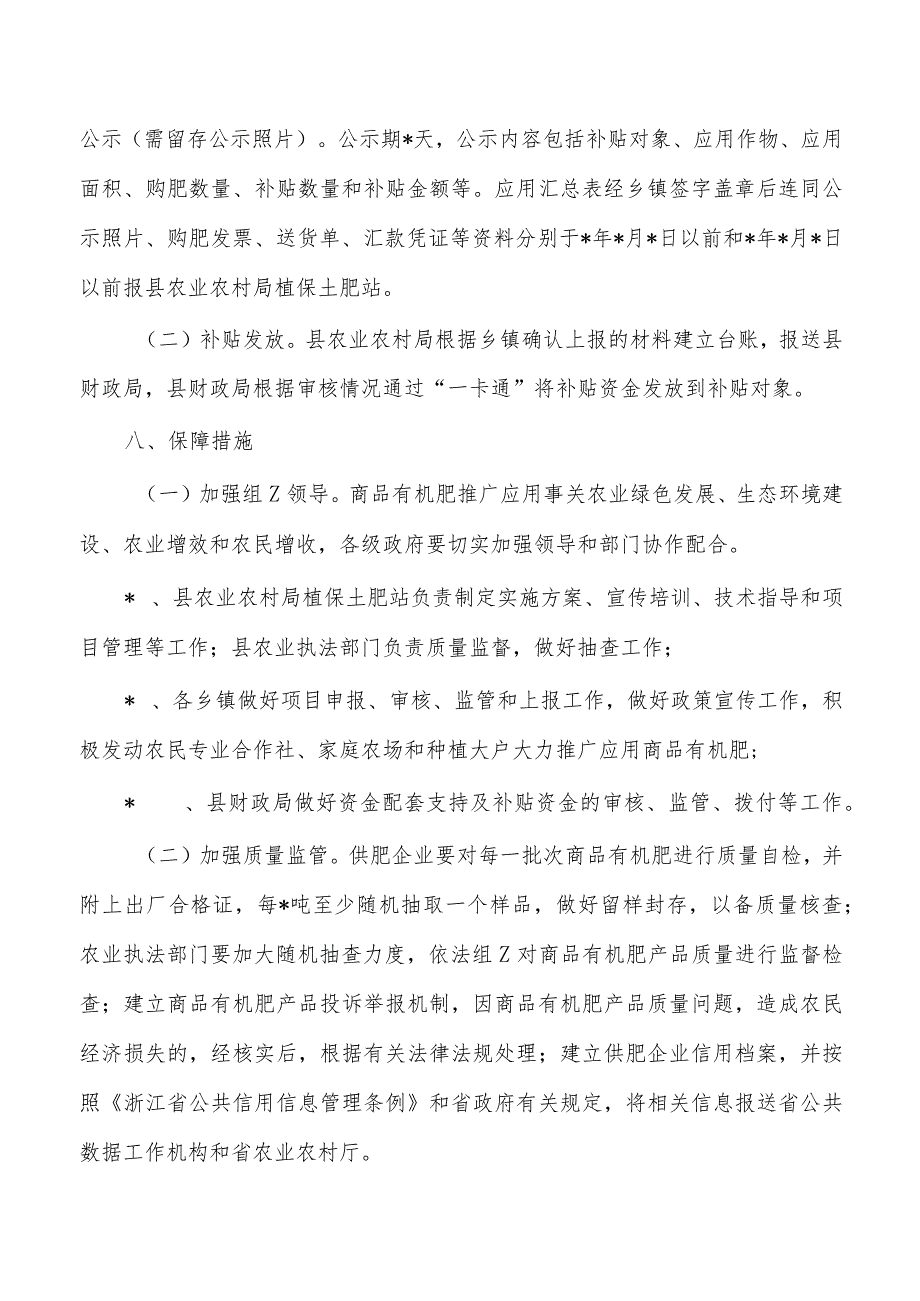 公示（需留存公示照片）。公示期*天，公示内容包括补贴对象、应用作物、应用
面积、购肥数量、补贴数量和补贴金额等。应用汇总表经乡镇签字盖章后连同公
示照片、购肥发票、送货单、汇款凭证等资料分别于*年*月*日以前和*年*月*日
以前报县农业农村局植保土肥站。
（二）补贴发放。县农业农村局根据乡镇确认上报的材料建立台账，报送县
财政局，县财政局根据审核情况通过“一卡通”将补贴资金发放到补贴对象。
八、保障措施
（一）加强组Z领导。商品有机肥推广应用事关农业绿色发展、生态环境建
设、农业增效和农民增收，各级政府要切实加强领导和部门协作配合。
* 、县农业农村局植保土肥站负责制定实施方案、宣传培训、技术指导和项
目管理等工作；县农业执法部门负责质量监督，做好抽查工作；
* 、各乡镇做好项目申报、审核、监管和上报工作，做好政策宣传工作，积
极发动农民专业合作社、家庭农场和种植大户大力推广应用商品有机肥;
* 、县财政局做好资金配套支持及补贴资金的审核、监管、拨付等工作。
（二）加强质量监管。供肥企业要对每一批次商品有机肥进行质量自检，并
附上出厂合格证，每*吨至少随机抽取一个样品，做好留样封存，以备质量核查；
农业执法部门要加大随机抽查力度，依法组Z对商品有机肥产品质量进行监督检
查；建立商品有机肥产品投诉举报机制，因商品有机肥产品质量问题，造成农民
经济损失的，经核实后，根据有关法律法规处理；建立供肥企业信用档案，并按
照《浙江省公共信用信息管理条例》和省政府有关规定，将相关信息报送省公共
数据工作机构和省农业农村厅。